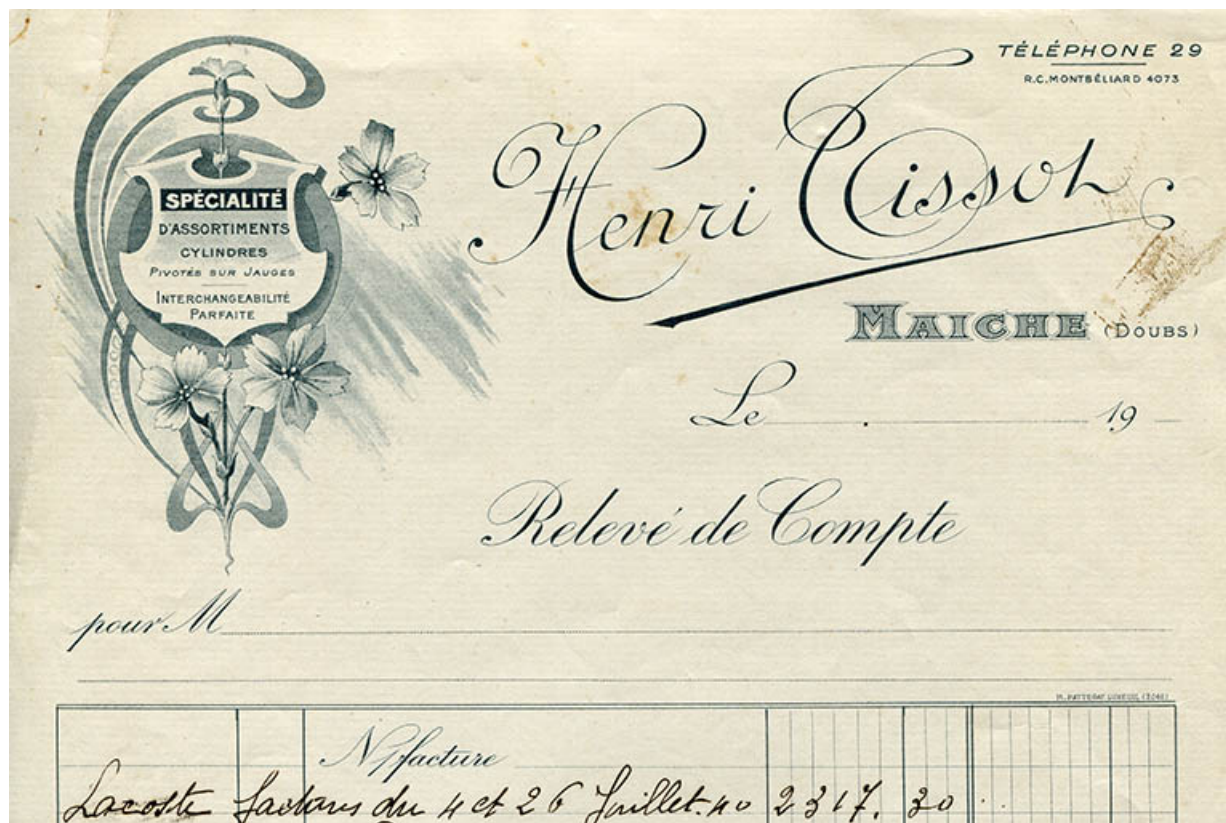 TÉLÉPHONE 29
R.C. MONTBÉLIARD 4073
Henri Tissot
SPÉCIALITÉ
D'ASSORTIMENTS
CYLINDRES
PIVOTÉS SUR JAUGES
INTERCHANGEABILITÉ
PARFAITE
MAICHE (DOUBS)
Le 19
Relevé de Compte
pour M
N/facture
Lacoste factures du 4 et 26 Juillet. 40 2317. 30